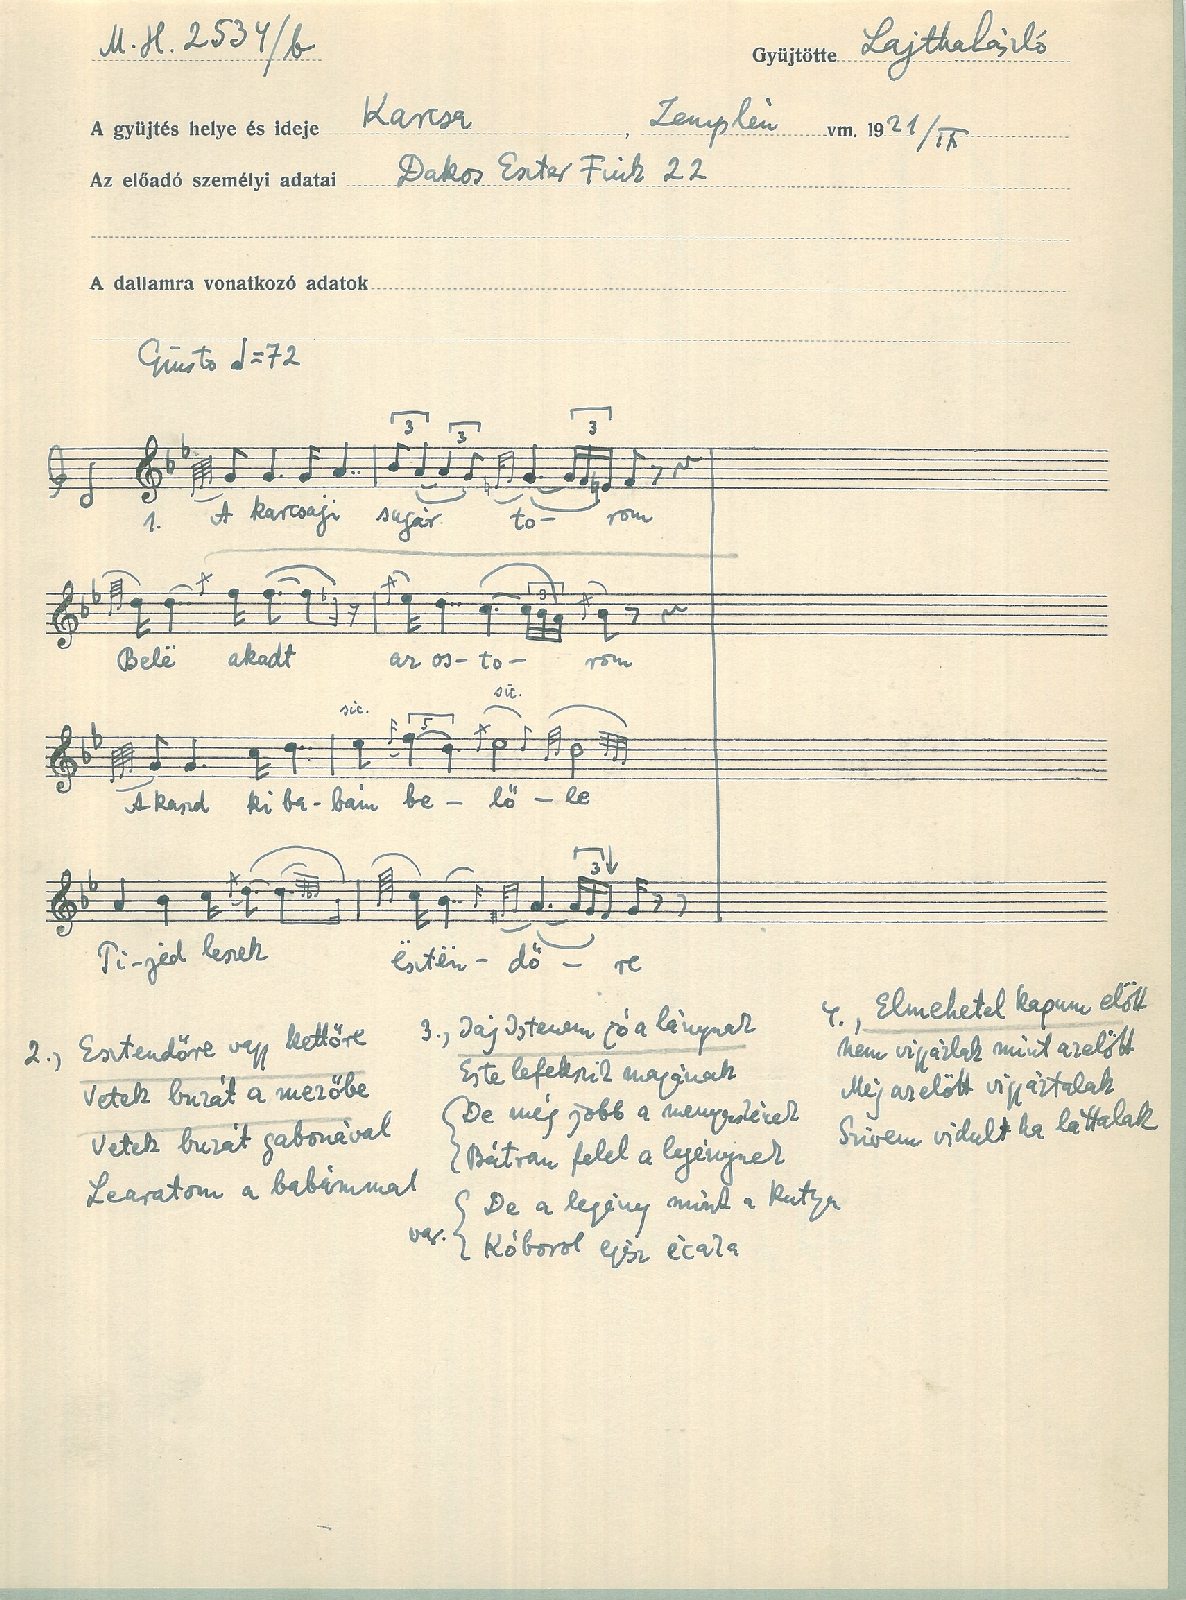 M.H. 2534/b
Gyüjtötte Lajtha László
A gyüjtés helye és ideje Karcsa, Zemplén vm. 1921/IX
Az előadó személyi adatai Dakos Eszter 22
A dallamra vonatkozó adatok
Giusto =72
3 3 3
1. A karcsaji sugár to- rom
3
Belë akadt az os- to- rom
sic. sic.
5
Akaszd ki ba- bám be - lő - le
3
Ti-jéd leszek ësztën - dő - re
2., Esztendőre vagy kettőre
Vetek buzát a mezőbe
Vetek buzát gabonával
Learatom a babámmal
3., Jaj Istenem jó a lánynak
Este lefekszik magának
De még jobb a menyecskének
Bátran felel a legénynek
var. De a legény mint a kutya
Kóborol egész écaka
4., Elmehetel kapum előtt
Nem vigyázlak mint azelőtt
Még azelőtt vigyáztalak
Szivem vidult ha láttalak